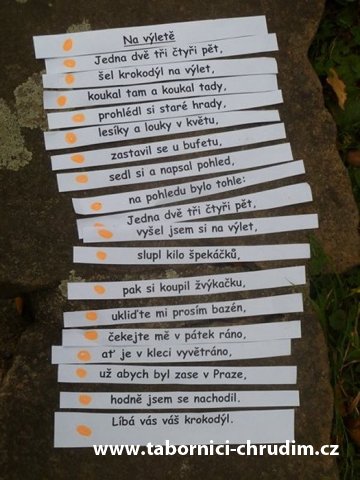 Na výletě
Jedna dvě tři čtyři pět,
šel krokodýl na výlet,
koukal tam a koukal tady,
prohlédl si staré hrady,
lesíky a louky v květu,
zastavil se u bufetu,
sedl si a napsal pohled,
na pohledu bylo tohle:
Jedna dvě tři čtyři pět,
vyšel jsem si na výlet,
slupl kilo špekáčků,
pak si koupil žvýkačku,
ukliďte mi prosím bazén,
čekejte mě v pátek ráno,
ať je v kleci vyvětráno,
už abych byl zase v Praze,
hodně jsem se nachodil.
Líbá vás váš krokodýl.
www.tabornici-chrudim.cz